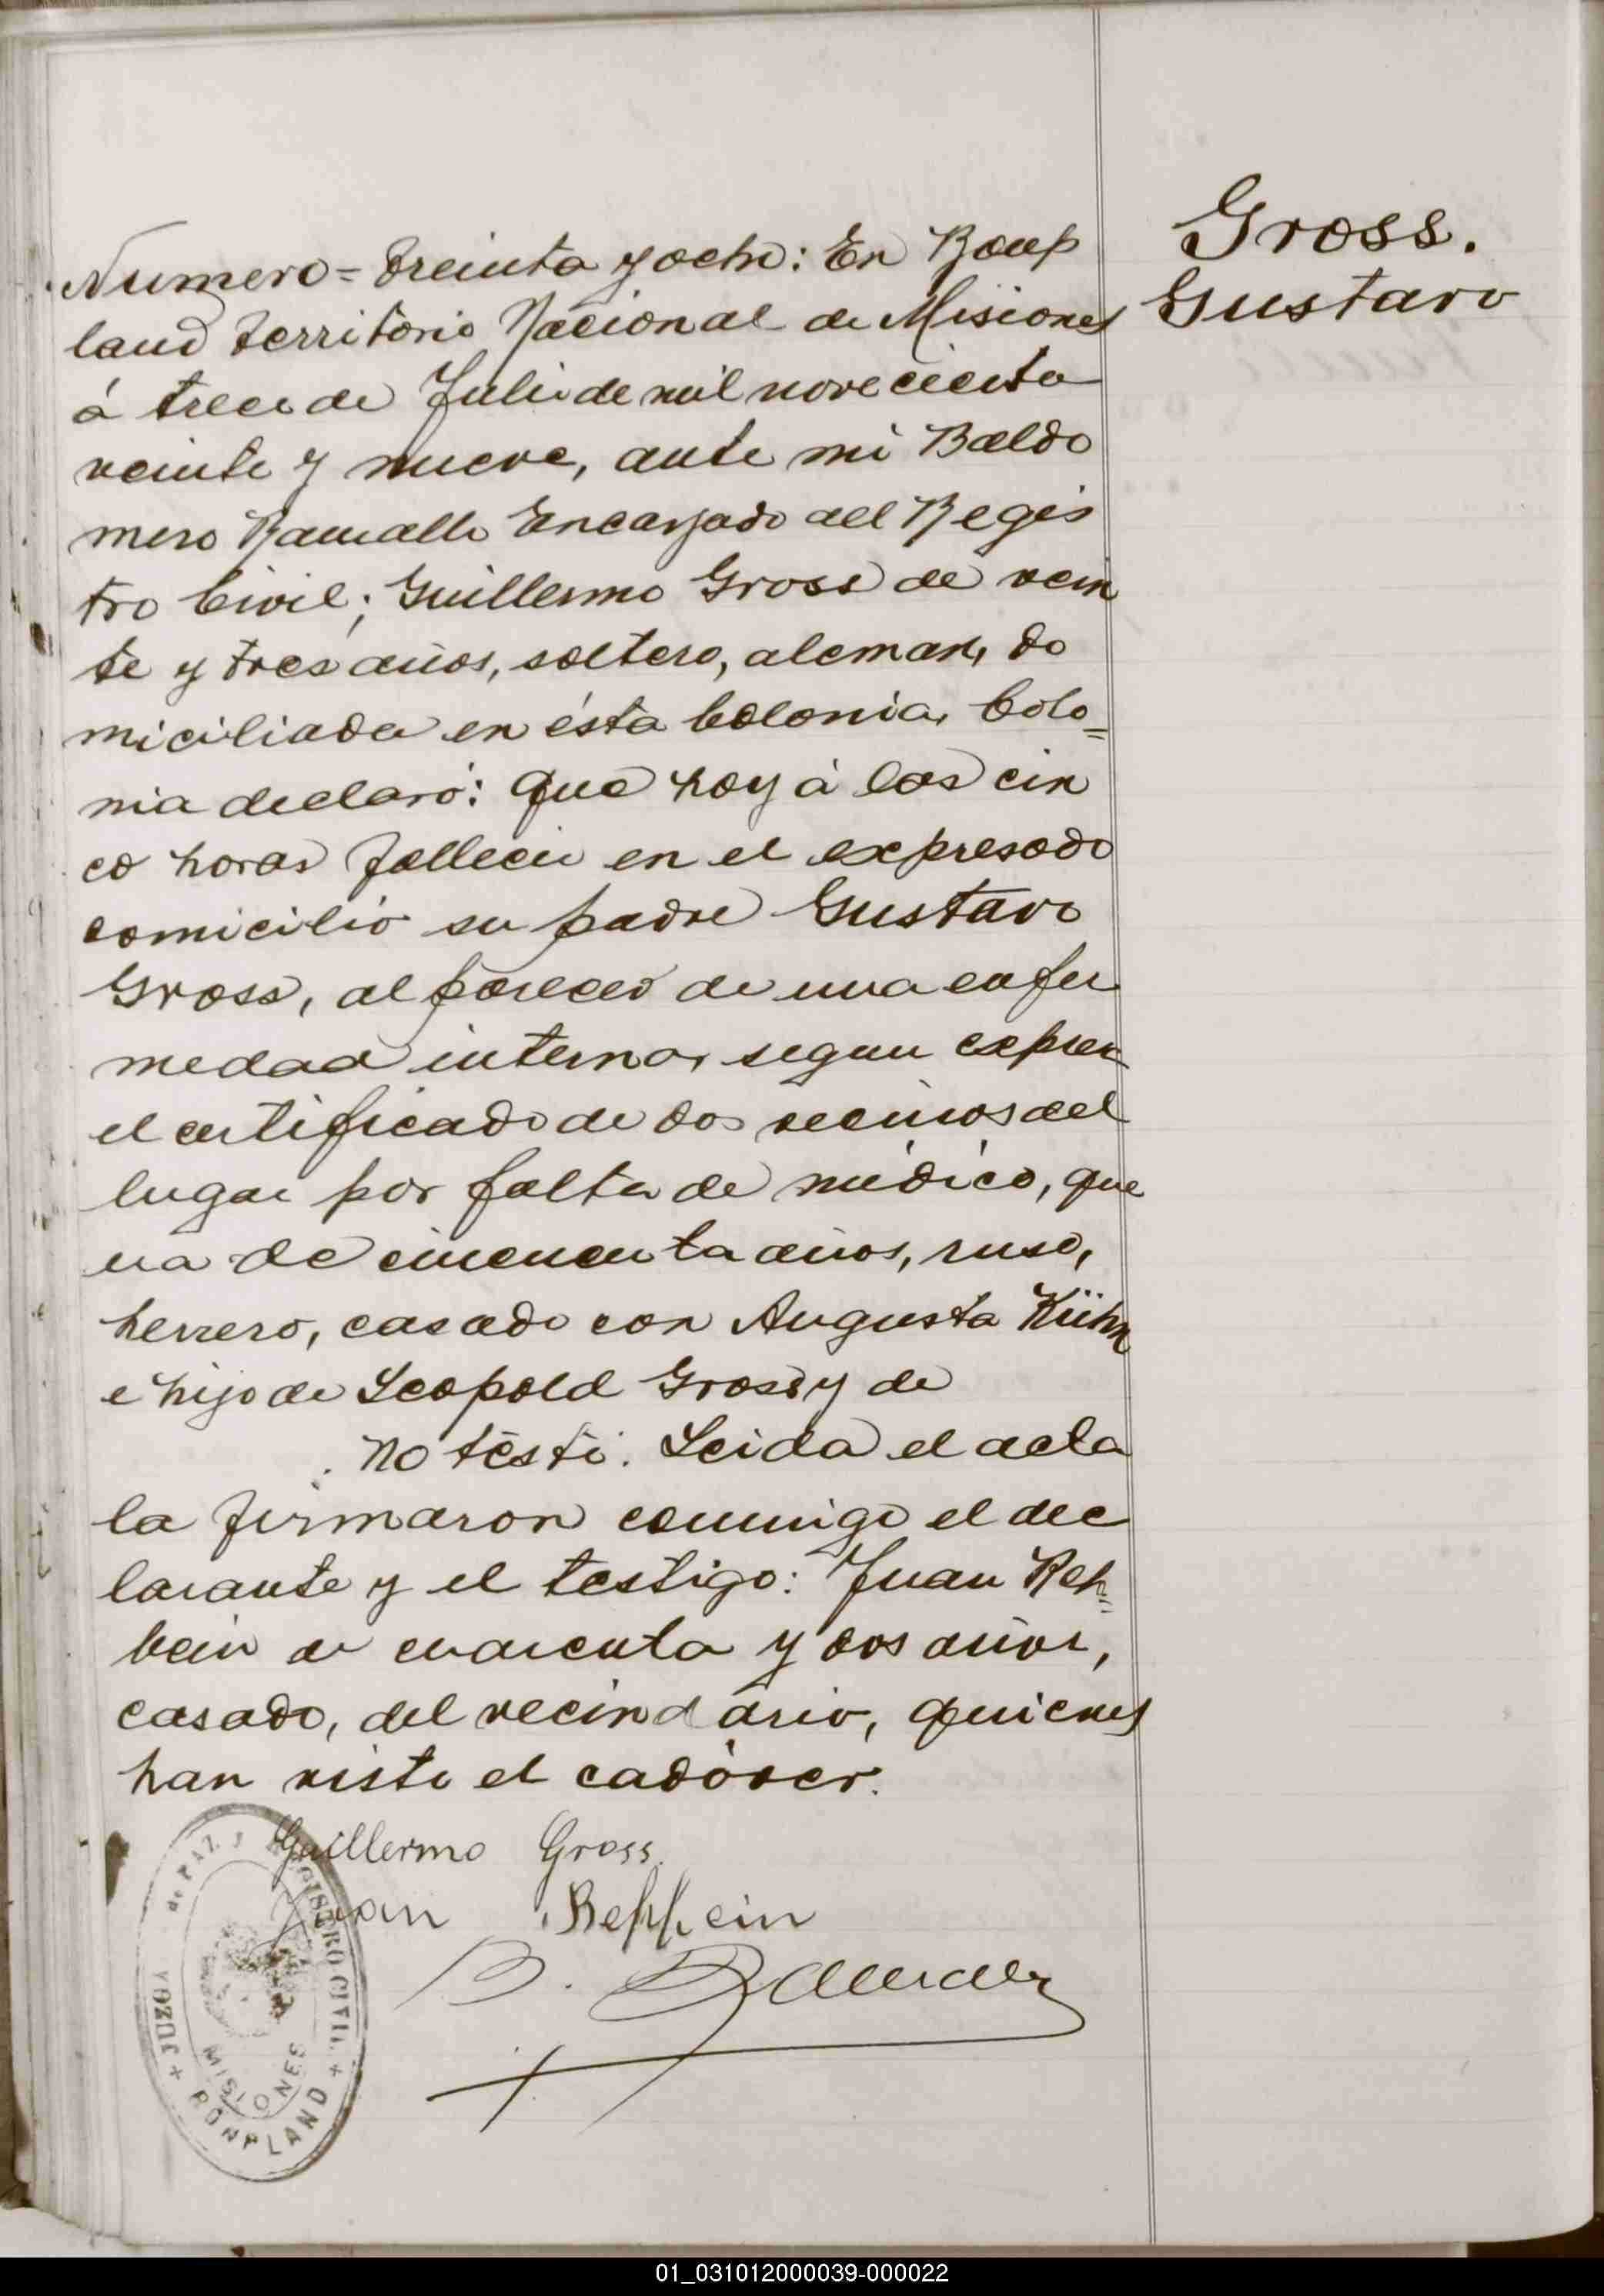 Gross.
Gustavo
Numero = Treinta y ocho: En Bonp
land Territorio Nacional de Misiones
á trece de Julio de mil novecientos
veinte y nueve, ante mi Baldo
mero Ramallo Encargado del Regis
tro Civil; Guillermo Gross de vein
te y tres años, soltero, aleman, do
miciliado en ésta Colonia, Colo=
nia declaró: Que hoy á las cin
co horas falleció en el expresado
comicilio su padre Gustavo
Gross, al parecer de una enfer
medad interna, segun expresa
el certificado de dos vecinos del
lugar por falta de médico, que
era de cincuenta años, ruso,
herrero, casado con Augusta Kühn
e hijo de Leopold Gross y de
. No testó. Leida el acta
la firmaron conmigo el dec
larante y el testigo: Juan Reh=
bein de cuarenta y dos años,
casado, del vecindario, quienes
han visto el cadáver.
Guillermo Gross.
Juan Rehbein
B. Ramallo
JUZGA de PAZ y REGISTRO CIVIL
MISIONES
BONPLAND
01_031012000039-000022